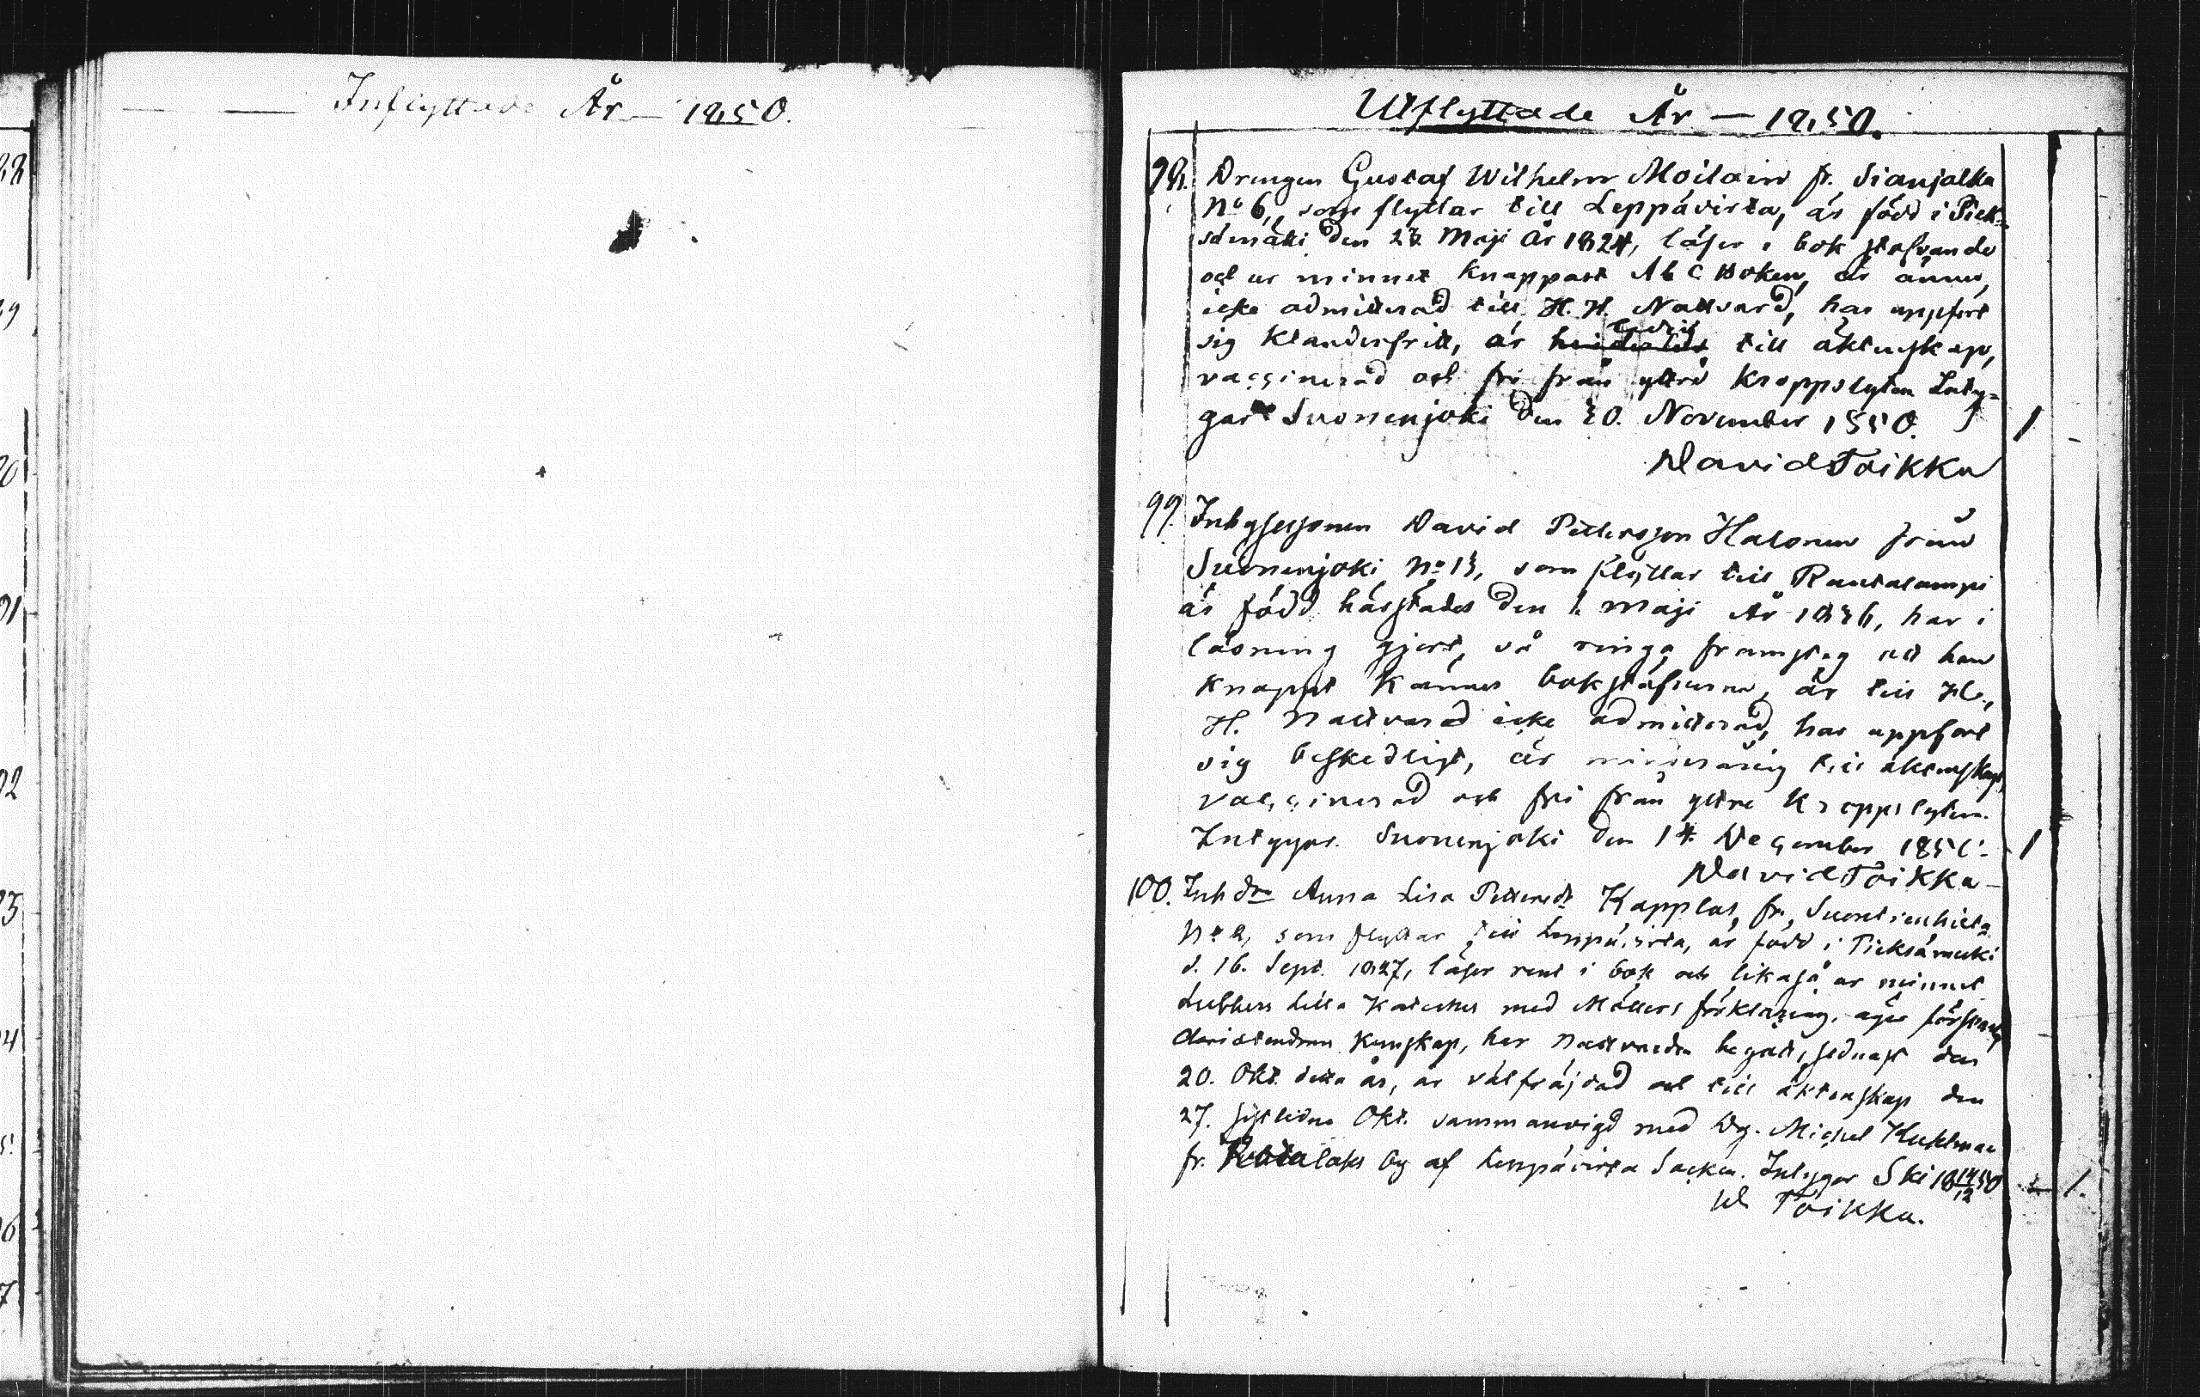 Inflyttade År 1850.
Utflyttade År 1850.
98. Drengen Gustaf Wilhelm Moilain fr. Sianjalka
No 6, som flyttar till Leppävirta, är född i Piek-
sämäki den 28 Maji år 1824, läser i bok stafvande
och ur minnet knappast ABC Boken, är ännu
icke admitterad till H. H. Nattvard, har uppfört
sig klanderfritt, är ledig till äktenskap,
vaccinerad och fri från yttre kroppslyten Inty-
gar Suonenjoki den 30. November 1850. 1
David Toikka
99. Inhysessonen David Pettersson Halonen från
Suonenjoki No 13, som flyttar till Rautalampi
är född härstädes den 1. Maji År 1836, har i
läsning gjort så ringa framsteg att han
knappt känner bokstäfverna, är till H.
H. Nattvard icke admitterad, har uppfört
sig beskedligt, är minderårig till äktenskap,
vaccinerad och fri från yttre kroppslyten.
Intygar Suonenjoki den 14 December 1850. 1
David Toikka
100. Inh dr Anna Lisa Pettersdr Kapplas, fr.
No 2, som flyttar till Leppävirta, är född i Pieksämäki
d. 16. Sept. 1827, läser rent i bok och likaså ur minnet
Lutheri Lilla Kateches med Möllers förklaring, äger försvarlig
christendoms kunskap, har Nattvarden begått sednast den
20. Okt. detta år, är välfräjdad och till äktenskap den
27. sistledne Okt. sammanvigd med Drg. Michel Kuhlman
fr. by af Leppävirta Socken. Intygar Ski 18 14/12 50 1.
D Toikka.